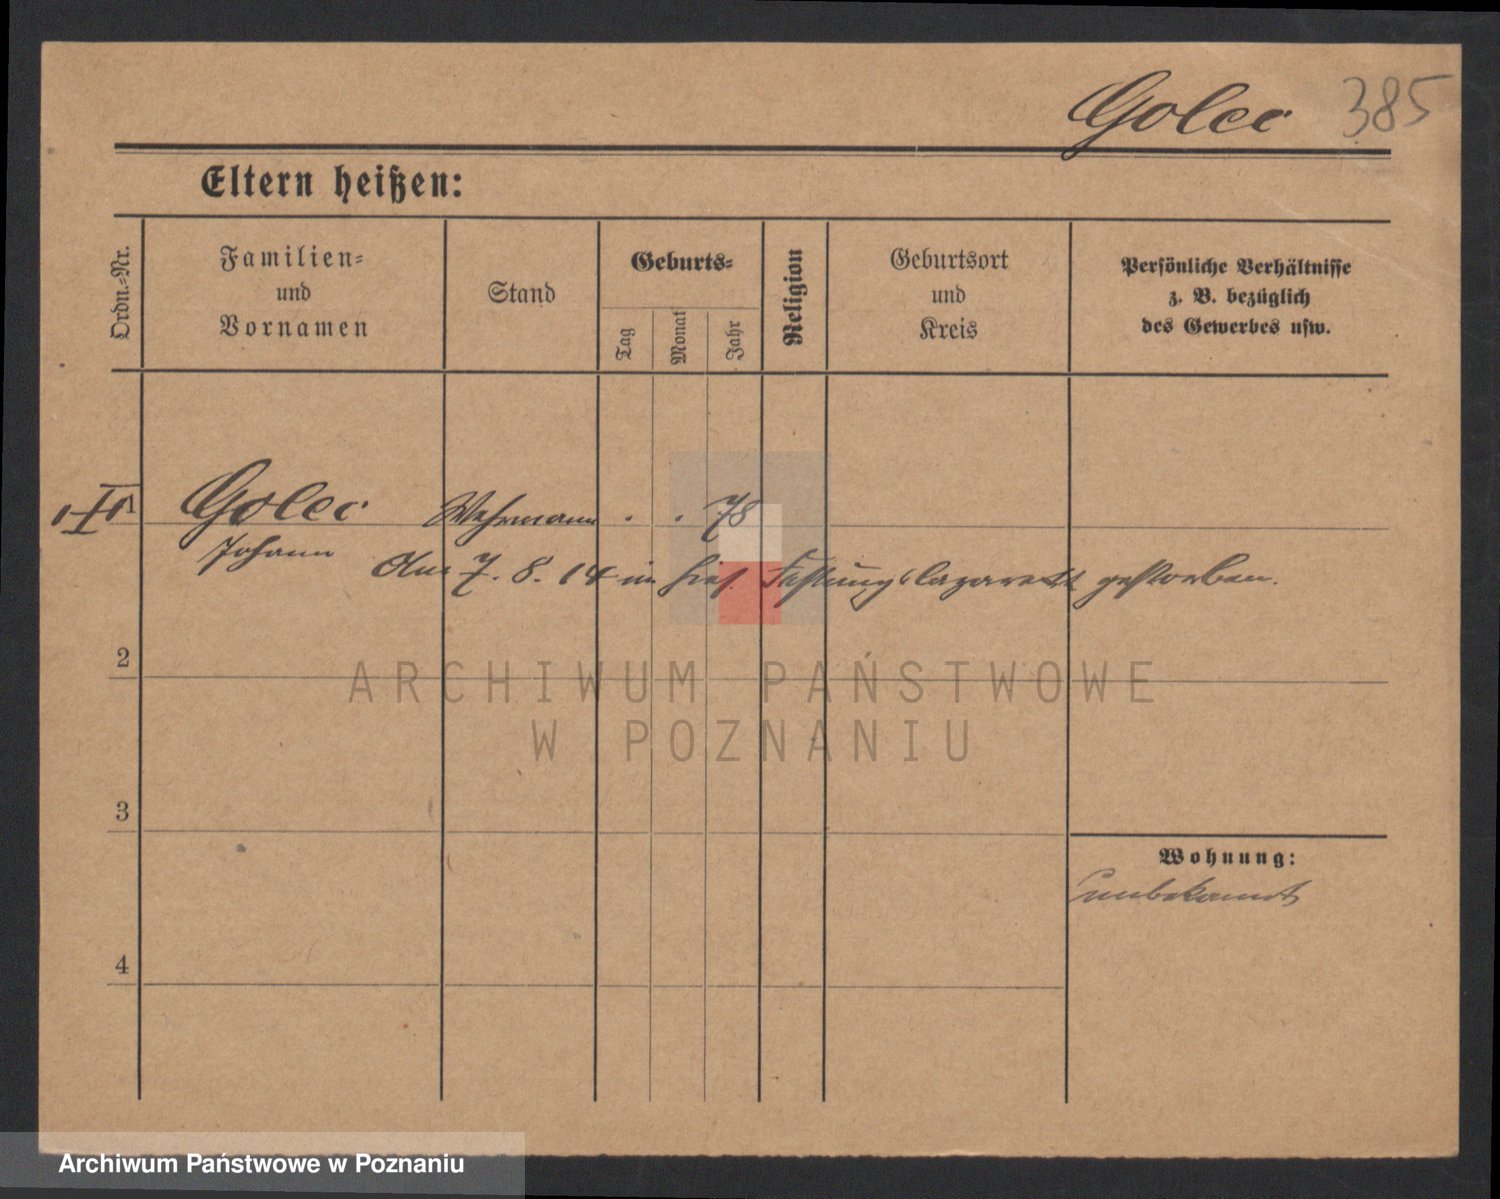 Golec 385
Eltern heißen:
Ordn.-Nr.
Familien-
und
Vornamen
Stand
Geburts-
Tag
Monat
Jahr
Religion
Geburtsort
und
Kreis
Persönliche Verhältnisse
z. B. bezüglich
des Gewerbes usw.
1 Golec Wehrmann . . 78
Johann Am 7. 8. 14 im hies. Festungslazarett gestorben.
2
3
4
Wohnung:
unbekannt
ARCHIWUM PAŃSTWOWE
W POZNANIU
Archiwum Państwowe w Poznaniu